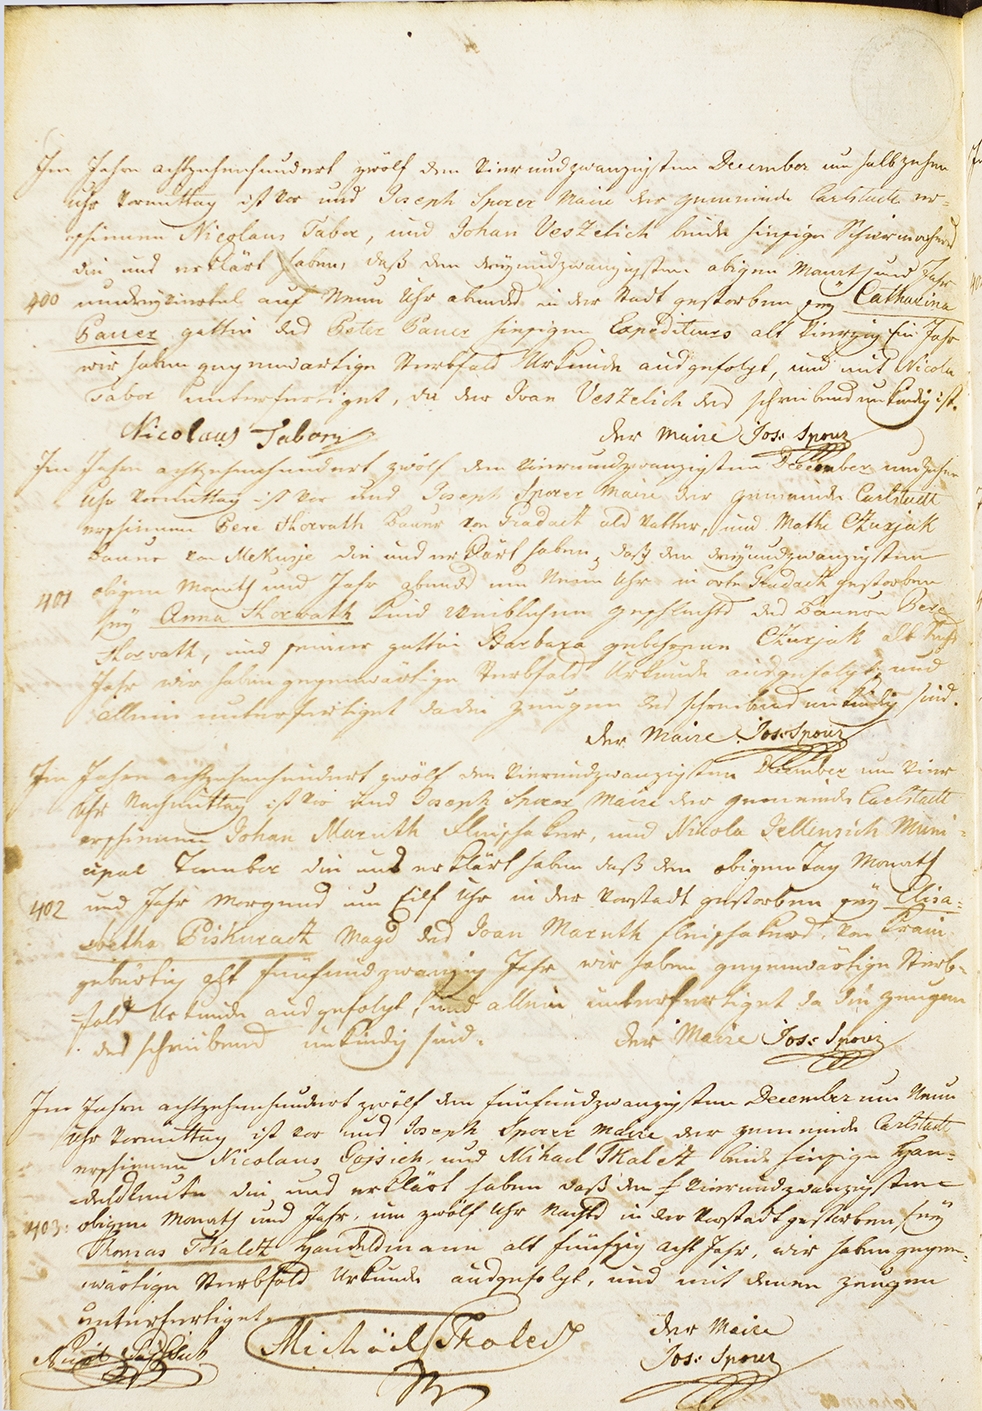 Im Jahre achtzehenhundert zwölf den Vierundzwanzigsten December um halb zehen
Uhr Vormittag ist vor uns Joseph Sporer Maire der gemeinde Carlstadt er-
schienen Nicolaus Tabor, und Johan Veszelich beide hiesige
die uns erklärt haben, daß den dreyundzwanzigsten obigen Monath und Jahr
400 um dreyviertel auf Neun Uhr abends in der Stadt gestorben sey Catharina
Pauer gattin des Peter Pauer hiesigen Expediteurs alt vierzig Ein Jahr
wir haben gegenwärtige Sterbfalls Urkunde ausgefolgt, und mit Nicola
Tabor unterfertiget, da der Ivan Veszelich des schreibens unkündig ist.
Nicolaus Tabory der Maire Jos: Sporer
Im Jahre achtzehenhundert zwölf den Vierundzwanzigsten December um Zehen
Uhr Vormittag ist vor uns Joseph Sporer Maire der gemeinde Carlstadt
erschienen Pere Horvath Bauer von Gradatz als Vatter, und Mathe Czurjak
Bauer von Mekusje die uns erklärt haben, daß den dreyundzwanzigsten
obigen Monath und Jahr abends um Neun Uhr in orte Gradatz gestorben
401 sey Anna Horvath Kind weiblichen geschlechts des Bauern Pere
Horvath, und seiner gattin Barbara gebohrene Czurjak alt
Jahr wir haben gegenwärtige Sterbfalls Urkunde ausgefolgt, und
allein unterfertiget da die zeugen des schreibens unkündig sind.
der Maire Jos: Sporer
Im Jahre achtzehenhundert zwölf den Vierundzwanzigsten December um Vier
Uhr Nachmittag ist vor uns Joseph Sporer Maire der gemeinde Carlstadt
erschienen Johan Maruth Fleischaker, und Nicola Jellensich Muni-
cipal Tambor die uns erklärt haben daß den obigen Tag Monath
402 und Jahr Morgens um Eilf Uhr in der Vorstadt gestorben sey Elisa-
betha Piskuratz Magd des Ivan Maruth Fleischakers, von Krain
gebürtig alt fünfundzwanzig Jahr wir haben gegenwärtige Sterb-
falls Urkunde ausgefolgt, und allein unterfertiget da die zeugen
des schreibens unkündig sind. der Maire Jos: Sporer
Im Jahre achtzehenhundert zwölf den fünfundzwanzigsten December um Neun
Uhr Vormittag ist vor uns Joseph Sporer Maire der gemeinde Carlstadt
erschienen Nicolaus Gojsich und Mihael Tkaletz beide hiesige Han-
delsleute die uns erklärt haben daß den Vierundzwanzigsten
403: obigen Monath und Jahr, um zwölf Uhr Nachts in der Vorstadt gestorben sey
Thomas Tkaletz Handelsmann alt fünfzig acht Jahr, wir haben gegen-
wärtige Sterbfalls Urkunde ausgefolgt, und mit denen zeugen
unterfertiget.
Michäil Tkaletz der Maire
Jos: Sporer